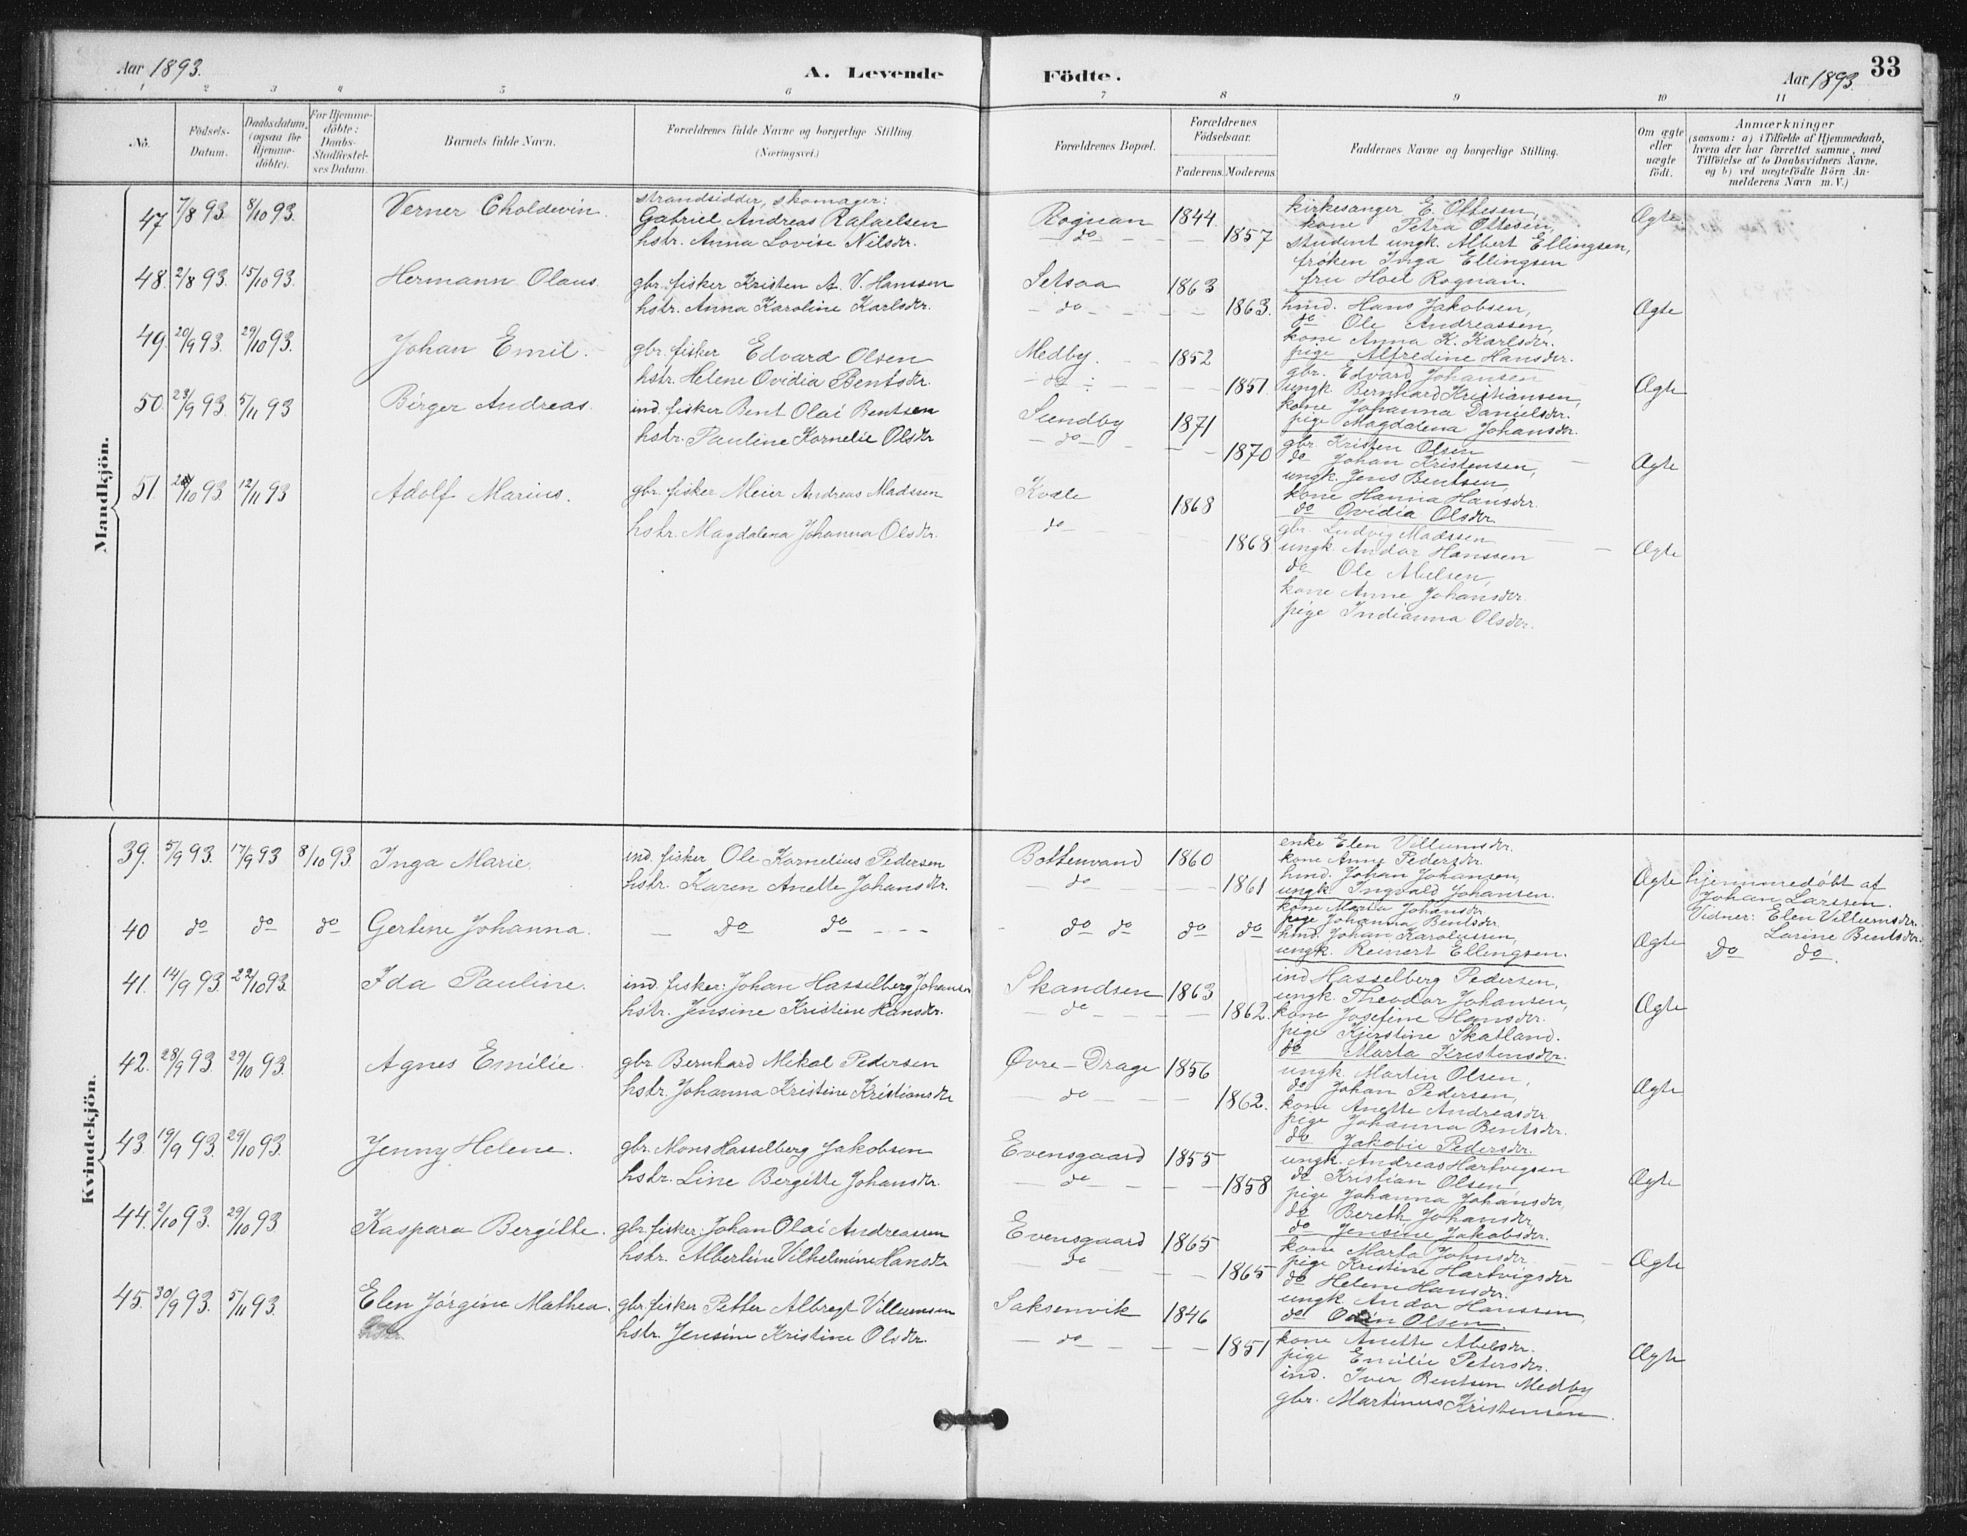 Aar 1893. A. Levende Födte. Aar 1893. 33
1 2 3 4 5 6 7 8 9 10 11
No. Födsels-Datum. Daabsdatum, (ogsaa for Hjemme-döbte). For Hjemme-döbte: Daabs-Stadfæstel-ses Datum. Barnets fulde Navn. Forældrenes fulde Navne og borgerlige Stilling (Næringsvei.) Forældrenes Bopæl. Forældrenes Födselsaar. Faderens. Moderens. Faddernes Navne og borgerlige Stilling. Om ægte eller uægte född.
Anmærkninger
(saasom: a) i Tilfælde af Hjemmedaab,
hvem der har forrettet samme, med
Tilföielse af to Daabsvidners Navne,
og b) ved uægtefödte Börn An-
melderens Navn m. V.)
Mandkjön.
47 7/8 93. 8/10 93. Verner Choldevin.
strandsidder, skomager:
Gabriel Andreas Rafaelsen
hstr. Anna Lovise Nilsdtr.
Rognan 1844
do 1857
kirkesanger E. Ottesen,
kone Petra Ottesen,
student ungk. Albert Ellingsen,
frøken Inga Ellingsen
fru Hoel Rognan.
Ægte
48. 2/8 93. 15/10 93. Hermann Olaus.
gbr. fisker Kristen A. V. Hanssen
hstr. Anna Karoline Karlsdtr.
Setsaa 1863
do 1863.
hmd. Hans Jakobsen,
do Ole Andreassen,
kone Anna K. Karlsdr.
pige Alfredine Hansdtr.
Ægte
49. 20/9 93. 29/10 93. Johan Emil.
gbr. fisker Edvard Olsen
hstr. Helene Ovidia Bentsdtr.
Medby. 1852
do 1851
gbr. Edvard Johansen
ungk. Bernhard Kristiansen,
kone Johanna Danielsdr.
pige Magdalena Johansdtr.
Ægte
50. 23/9 93. 5/11 93 Birger Andreas.
ind. fisker Bent Olai Bentsen
hstr. Pauline Kornelie Olsdtr
Sundby 1871
do 1870
gbr. Kristen Olsen
do Johan Kristensen,
ungk. Jens Bentsen,
kone Hanna Hansdr.
do Ovidia Olsdtr.
Ægte
51. 93 12/11 93 Adolf Marius.
gbr. fisker Meier Andreas Madssen
hstr. Magdalena Johanna Olsdtr.
Kvæle 1868
do 1868
gbr. Ludvig Madssen
ungk. Andor Hanssen
do Ole Abelsen,
kone Anne Johansdtr.
pige Indianna Olsdtr.
Ægte
Kvindekjön.
39. 5/9 93. 17/9 93 8/10 93 Inga Marie.
ind. fisker Ole Kornelius Pedersen
hstr. Karen Anette Johansdtr.
Bottenvand 1860
do 1861
enke Elen Villumsdr.
kone Anne Pedersdr.
hmd. Johan Johansen,
ungk. Ingvald Johansen.
Ægte
hjemmedøbt af
Johan Larssen.
Vidner: Elen Villumsdr.
Larine Bentsdr.
40 do do do Gertine Johanna.
do do
do do do do
kone Marta Johansdr
pige Johanna Bentsdr.
hmd. Johan Karolussen,
ungk. Reinert Ellingsen.
Ægte do do.
41. 14/9 93 22/10 93. Ida Pauline.
ind. fisker: Johan Hasselberg Johansen
hstr. Jensine Kristine Hansdtr.
Skandsen 1863
do 1862.
ind Hasselberg Pedersen,
ungk. Theodor Johansen,
kone Josefine Hansdtr.
pige Kjerstine Skatland.
do Marta Kristensdtr.
Ægte
42. 28/9 93. 29/10 93. Agnes Emilie.
gbr Bernhard Mikal Pedersen
hstr. Johanna Kristine Kristiansdtr
Øvre-Drage 1856
do 1862.
ungk. Martin Olsen,
do Johan Pedersen,
kone Anette Andreasdr.
pige Johanna Bentsdr.
do Jakobie Pedersdtr.
Ægte
43. 19/9 93. 29/10 93. Jenny Helene.
gbr. Mons Hasselberg Jakobsen
hstr. Line Bergitte Johansdtr.
Evensgaard 1855
do 1858
ungk. Andreas Hartvigsen
do Kristian Olsen
pige Johanna Johansdtr,
do Bereth Johansdtr
do Jensine Jakobsdtr.
Ægte
44. 2/10 93. 29/10 93 Kaspara Bergitte.
gbr. fisker: Johan Olai Andreassen
hstr. Albertine Vilhelmine Hansdtr
Evensgaard 1865
do 1865
kone Marta Johnsdtr.
pige Kristine Hartvigsdtr
do Helene Hansdtr.
ungk. Andor Hanssen,
do Odin Olsen.
Ægte
45. 30/9 93. 5/11 93. Elen Jørgine Mathea.
hstr.
gbr. fisker Petter Albregt Villumsen
hstr. Jensine Kristine Olsdtr.
Saksenvik 1846
do 1851
kone Anette Abelsdr.
pige Emilie Petersdr.
ind. Iver Bentsen Medby
gbr. Martinus Kristensen.
Ægte